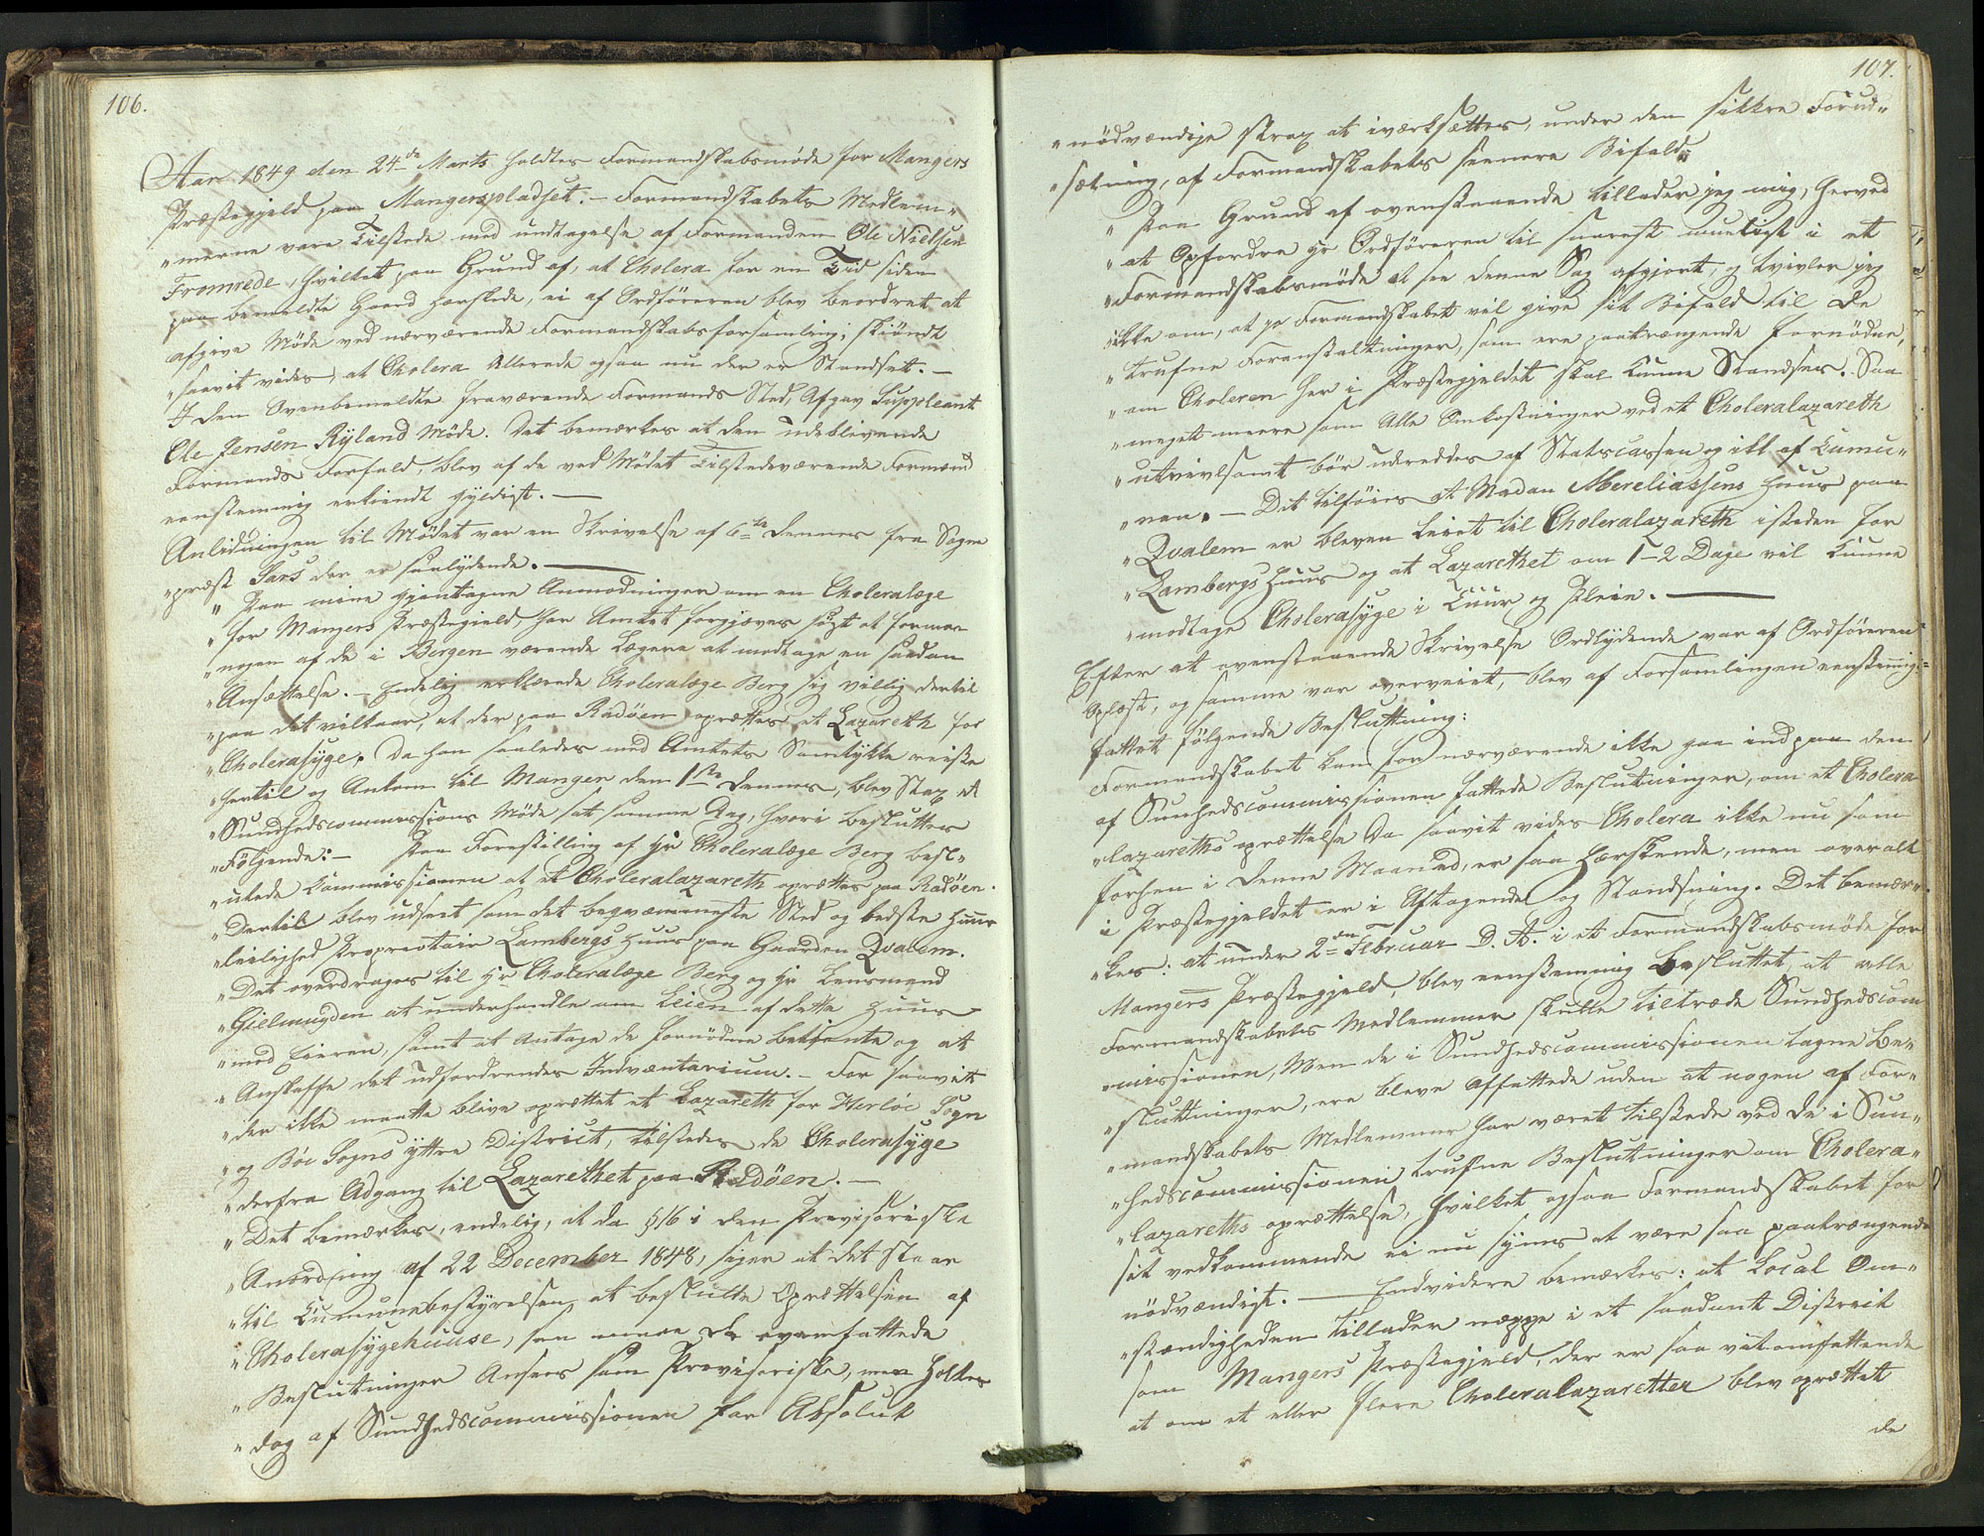 106.
Aar 1849 den 24de Marts holdtes Formandskabsmøde for Mangers
Præstegjeld paa Mangerspladset. – Formandskabets Medlem„
„merne vare Tilstede med undtagelse af Formanden Ole Nielsen
Fromrede, hvilket paa Grund af, at Cholera for en Tid siden
paa bemeldte Gaard herskede, ei af Ordföreren blev beordret at
afgive Möde ved nærværende Formandskabsforsamling; skiöndt
„saavit vides, at Cholera Allerede ogsaa nu der er Standset. –
I den Ovenbemeldte fraværende Formands Sted, Afgav Suppleant
Ole Jensen Ryland Möde. Det bemærkes at den udeblivende
Formands Forfald, blev af de ved Mödet Tilstedeværende Formænd
eenstemmig erkiendt gyldigt. —
Anledningen til Mödet var en Skrivelse af 6te dennes fra Sogne
„præst Sars der er saalydende. —
„ Paa mine gjentagne Anmodninger om en Choleralæge
„for Mangers Præstegield, har Amtet forgjæves sögt at formaae
„nogen af de i Bergen værende Lægere at modtage en saadan
„Ansættelse. – Endelig erklærede Choleralæge Berg sig villig dertil
„paa det vilkaar, at der paa Radöen oprettes et Lazareth for
„Cholerasyge. Da han saaledes med Amtets Samtykke reiste
„hertil og Ankom til Manger den 1ste dennes, blev Strax et
„Sundhedscommissions Möde sat samme Dag, hvori besluttes
„Fölgende: – Paa Forestilling af Hr Choleralæge Berg besl„
„utede Commissionen at et Choleralazareth oprettes paa Radöen.
„Dertil blev udseet som det beqvæmmeste Sted og bedste Huus
„leilighed Proprietair Lambergs Huus paa Gaarden Qvalem.
„Det overdrages til Hr Choleralæge Berg og Hr Lensmand
„Gielmuyden at underhandle om Leien af dette Huus
„med Eieren, samt at Antage de fornödne Betjente og at
„Anskaffe det udfordrendes Indvæntarium. – For saavitt
„der ikke maatte blive oprettet et Lazareth for Herlöe Sogn
„og Böe Sogns yttre District, tilstedes de Cholerasyge
„derfra Adgang til Lazarethet paa Radöen. —
„Det bemærkes, endelig, at da §16 i den Provisoriske
„Anordning af 22 December 1848, siger at det staar
„til Kumunebestyrelsen at beslutte Oprettelsen af
„Cholerasygehuuse, saa maae de ovenfattede
„Beslutninger Ansees som Provisoriske, men holdes
„dog af Sundhedscommissionen for Absolut
107.
„nödvændige strax at iværksættes, under den sikkre Forud„
„sætning, af Formandskabets seenere Bifald„
„ Paa Grund af ovenstaaende tillader jeg mig, herved
„at Opfordre Hr Ordföreren til snarest mueligst i et
„Formandskabsmöde at see denne Sag afgjort, og tvivler jeg
„ikke om, at Hr Formandskabet vil give sit Bifald til de
„trufne Foranstaltninger, som ere paatrængende fornödne,
„om Choleren her i Præstegjeldet skal kunne Standses. Saa
„meget meere som Alle Omkostninger ved et Choleralazareth
„utvivlsomt bör udreddes af Statscassen og ikke af Kumu„
„nen. – Det tilföies at Madam Mereliassens Huus paa
„Qvalem er bleven leiet til Choleralazareth isteden for
„Lambergs Huus og at Lazarethet om 1–2 Dage vil kunne
„modtage Cholerasyge i Cuur og Pleie. —
Efter at ovenstaaende Skrivelse Ordlydende var af Ordföreren
Oplæst, og samme var overveiet, blev af Forsamlingen eenstemmig
fattet fölgende Besluttning:
Formandskabet kan for nærværende ikke gaa ind paa den
af Sunhedscommissionen fattede Beslutninger, om et Cholera
„lazareths oprettelse da saavit vides Cholera ikke nu som
forhen i denne Maaned, er saa herskende, men overalt
i Præstegjeldet er i Aftagende og Standsning. Det bemær„
„kes: at under 2den Februar D. A. i et Formandskabsmöde for
Mangers Præstegjeld, blev eenstemmig Besluttet at alle
Formandskabets Medlemmer skulle tiltræde Sundhedscom
„missionen, Men de i Sundhedscommissionen tagne Be„
„slutninger, ere bleve Affattede uden at nogen af For„
„mandskabets Medlemmer har været tilstede ved de i Sun„
„hedscommissionen trufne Beslutninger om Cholera„
„lazareths oprettelse, hvilket ogsaa Formandskabet for
sit vedkommende ei nu synes at være saa paatrængende
nödvændigt. — Endvidere bemærkes: at Local Om„
„stændigheden tillader neppe i et saadant District
som Mangers Præstegjeld, der er saa vitomfattende
at om et eller flere Choleralazaretter blev oprettet
de